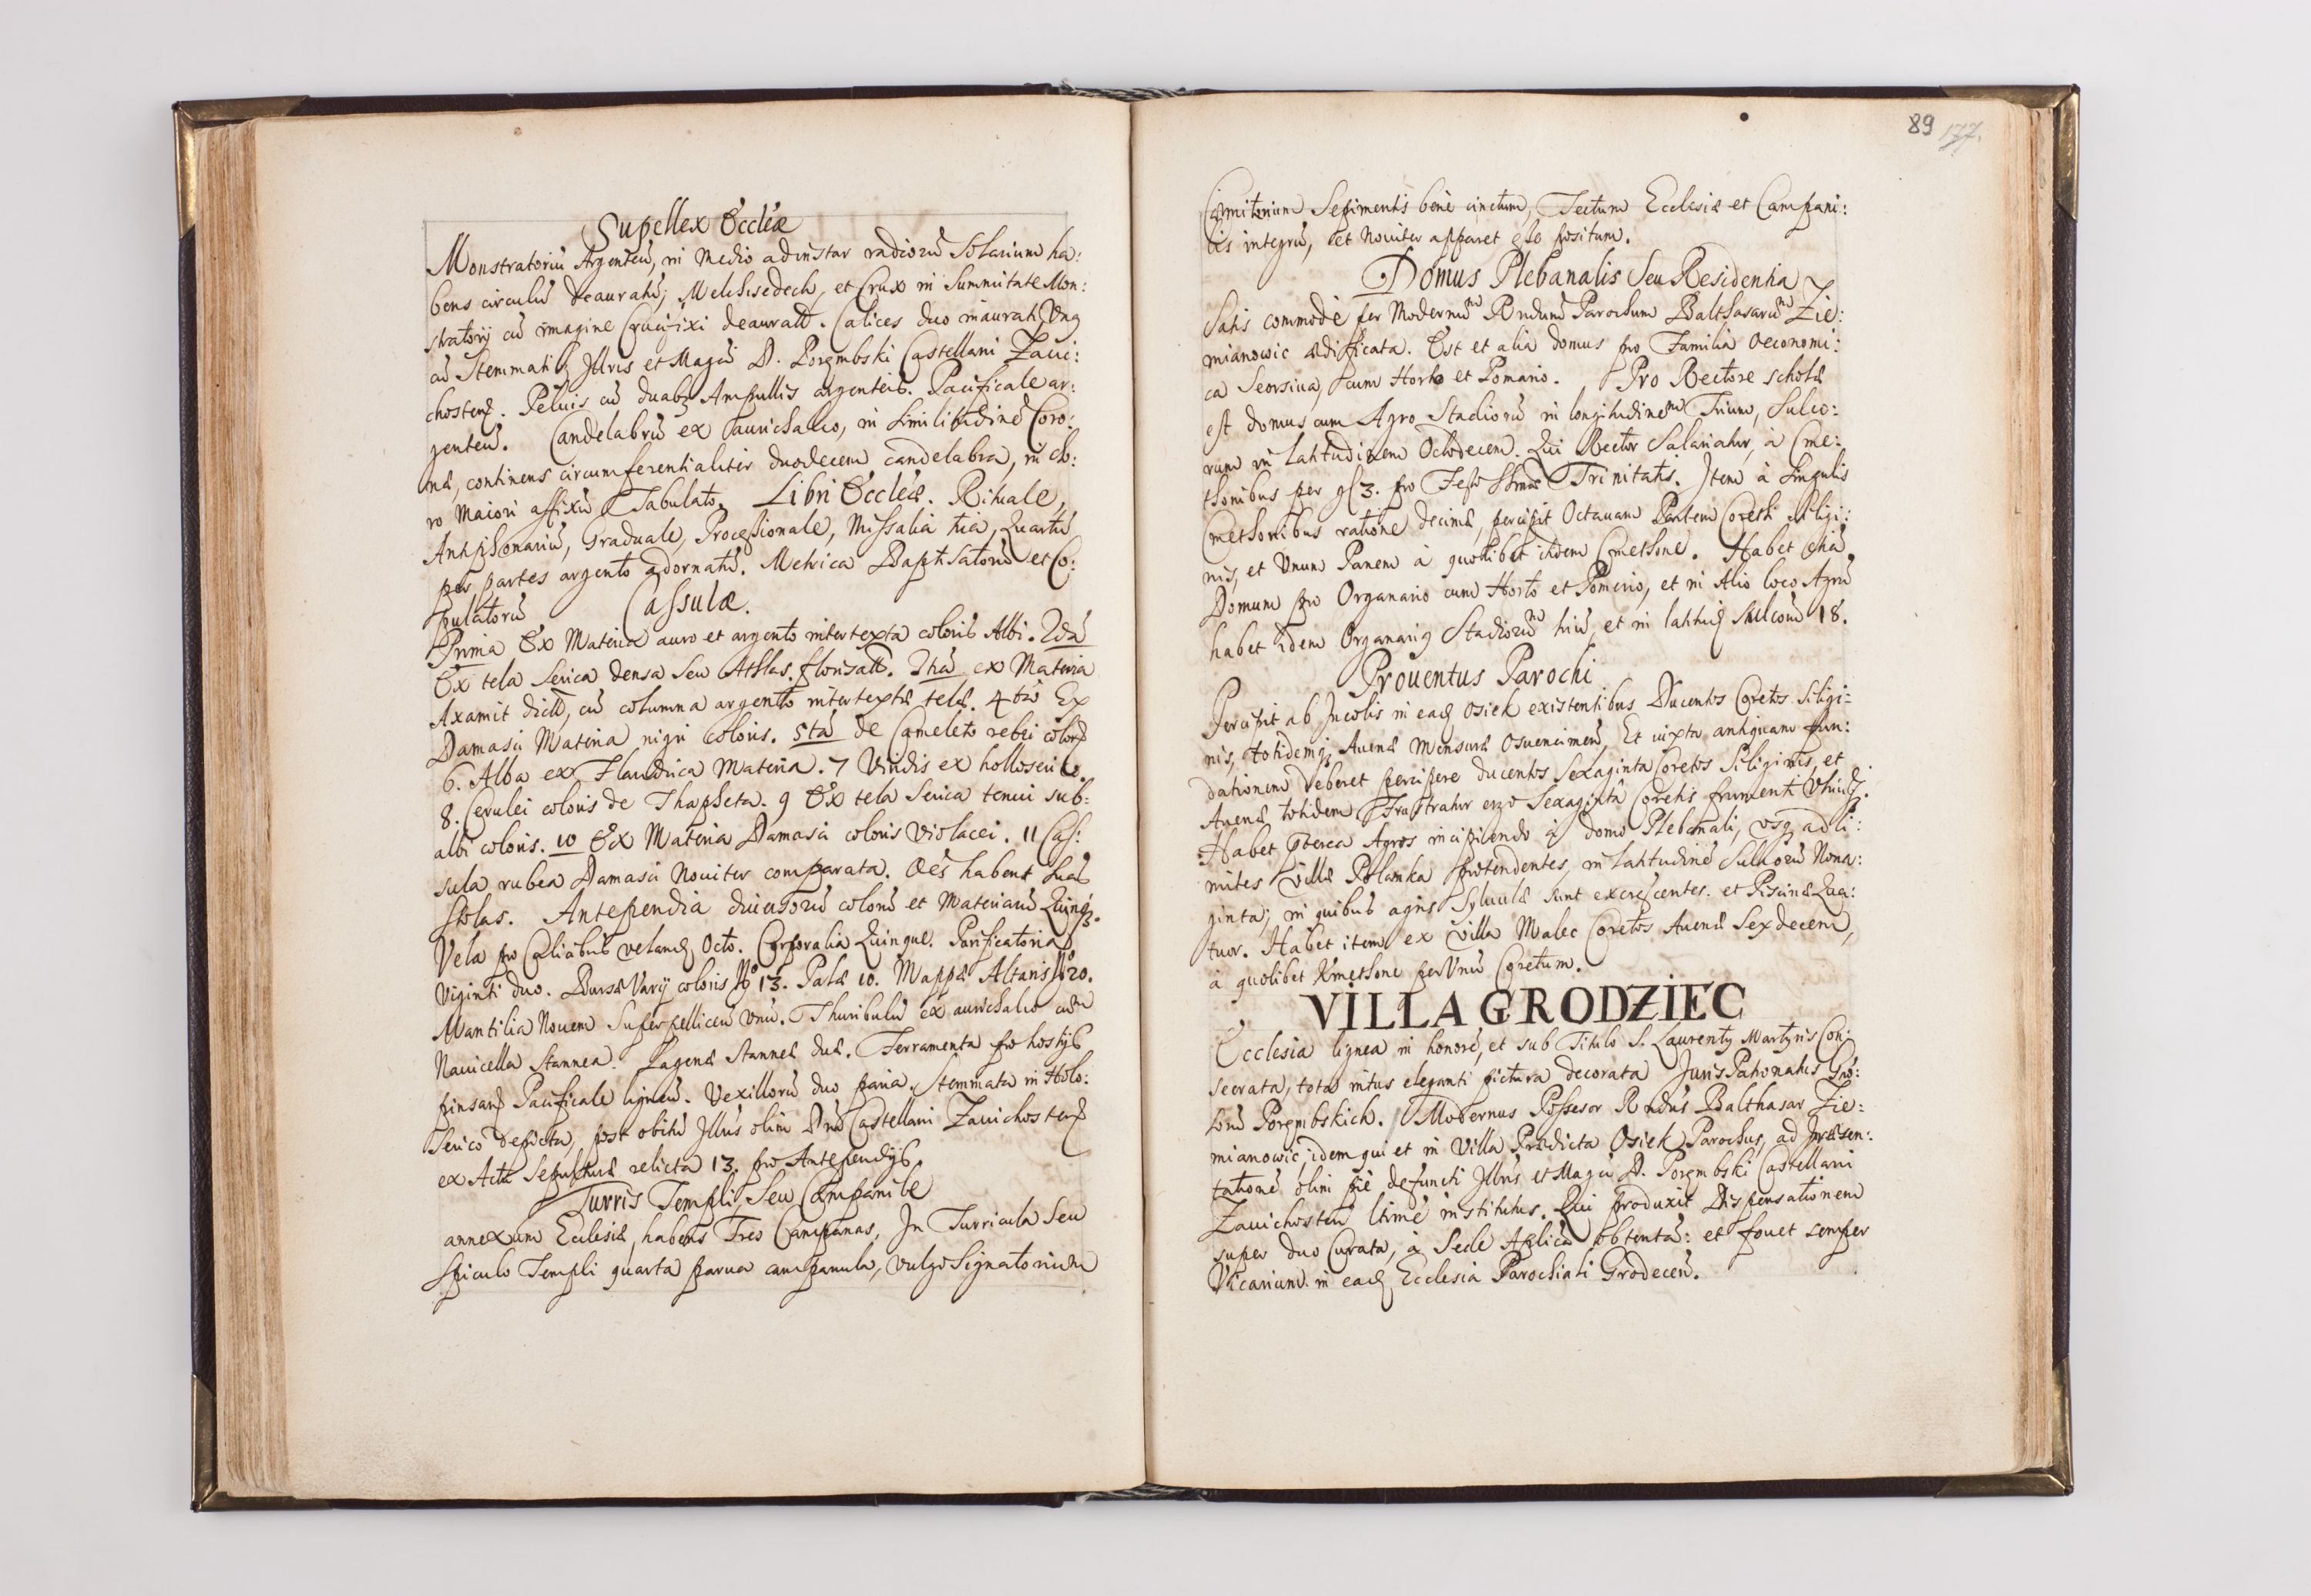 Supellex Eccleæ
Monstratoriũ Argenteũ, in Medio ad instar radiorũ Solarium ha:
bens circulũ deauratũ; Melchisedech, et Crux in summitate Mon:
stratorij cũ imagine Crucifixi deaurate. Calices duo inaurati, Unq
cũ Stemmatibq Illris et Magci D. Porembski Castellani Zaui:
chosten. Peluis cũ duabq Ampullis argenteis. Pacificale ar:
genteũ. Candelabrũ ex aurichalco, in similitudinē Coro:
næ, continens circumferentialiter duodecem candelabra, in cho:
ro Maiori affixũ Tabulato. Libri Eccleæ. Rituale,
Antiphonariũ, Graduale, Processionale, Missalia tria, Quartũ
per partes argento adornatũ. Metrica Baptisatorũ et Co:
pulatorũ Cassulæ.
Prima Ex Materia auro et argento intertexta coloris Albi. 2da
Ex tela Serica densa seu Athlas. florisatte. 3tia ex Materia
Axamit dicte, cũ columna argento intertextæ telæ. 4ta Ex
Damasci Materia nigri coloris. 5ta de Cameleto rebri color
6. Alba ex Flandrica Materia. 7 Viridis ex holloserico.
8. Cerulei coloris de Thapheta. 9 Ex tela Serica tenui sub:
albi coloris. 10 Ex Materia Damasci coloris Violacei. 11 Cas:
sula rubea Damasci Nouiter comparata. Oēs habent suas
stolas. Antependia diuersorũ colorũ et Materiarũ Quinqz.
Vela pro Calicibus velandis Octo. Corporalia Quinque. Purificatoria
Viginti duo. Bursæ Varij coloris No 13. Palæ 10. Mappæ Altaris No 20.
Mantilia Nouem Superpelliceũ Unũ. Thuribulũ ex aurichalco cum
Nauicella Stannea. Lagenæ Stanneæ duæ. Ferramenta pro hostijs
pinsand Pacificale ligneũ. Vexillorũ duo paria. Stemmata in Holo:
serico depicta, post obitũ Illris olim Dni Castellani Zauichosten
ex Actu Sepulturæ relicta 13. pro Antependijs
Turris Templi, Seu Campanile
annexum Ecclesiæ, habens Tres Campanas, In Turricula Seu
Spiculo Templi quarta parua campanula, vulgo Signatorium
89 177.
Cæmiterium Sepimentis bene cinctum, Tectum Ecclesiæ et Campani:
lis integrũ, et Nouiter apparet esse positum.
Domus Plebanalis Seu Residentia
Satis commode per Modernum Rndum Parochum Balthasarum Zie:
mianowic ædificata. Est et alia domus pro Familia Oeconomi:
ca Seorsiua, cum Horto et Pomario. Pro Rectore scholæ
est domus cum Agro Stadiorũ in longitudinem Trium, Sulco:
rum in latitudinem Octodecem. Qui Rector Salariatur, à Cme:
thonibus per gl 3. pro Festo SSmæ Trinitatis. Item à singulis
Cmethonibus ratione decimæ, percipit Octauam Partem Coreti siligi:
nis, et Unum Panem à quolibet itidem Cmethone. Habet etiã
Domum pro Organario cum Horto et Pomerio, et in Alio loco Agrũ
habet idem Organariq Stadiorum triũ, et in latitud Sulcorũ 18.
Prouentus Parochi
Percipit ab Incolis in ead Osiek existentibus Ducentos Coretos siligi:
nis, totidemqz Auenæ Mensuræ Osuencimen, Et iuxta antiquam fun:
dationem deberet percipere ducentos Sexaginta Coretos Siliginis, et
Auenæ totidem Frustratur ergo Sexaginta Coretis frumenti Utriusqz.
Habet pterea Agros incipiendo à domo Plebanali, vsqz ad li:
mites villæ Polanka protendentes, in latitudinē Sulcorũ Nona:
ginta; in quibus agris Syluulæ sunt excrescentes. et Piscinæ Qua:
tuor. Habet item ex villa Malec Coretos Auenæ Sexdecem,
à quolibet Kmethone per Unũ Coretum.
VILLA GRODZIEC
Ecclesia lignea in honorē, et sub Titulo S. Laurentij Martyris Con:
secrata, tota intus eleganti pictura decorata Juris Patronatus Gro:
sorũ Porembskich. Modernus Possesor Rndus Balthasar Zie:
mianowic, idem qui et in Villa Prædicta Osiek Parochus, ad præsen:
tationē olim piè defuncti Illris et Magci D. Porembski Castellani
Zauichosten ltimè institutus. Qui produxit Dispensationem
super duo Curata, à Sede Aplica obtentã: et fouet semper
Vicarium in ead Ecclesia Parochiali Grodecen.